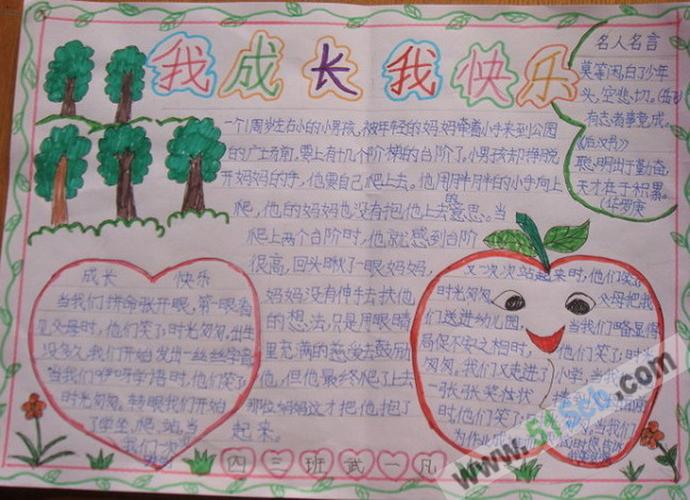 我成长我快乐
名人名言
莫等闲,白了少年
头,空悲切。(岳飞)
有志者事竟成。
《后汉书》
聪明出于勤奋,
天才在于积累。
(华罗庚
一个1周岁左右小的小男孩,被年轻的妈妈牵着小手来到公园
的广场前,要上有十几个阶梯的台阶了。小男孩却挣脱
开妈妈的手,他要自己爬上去。他用胖胖的小手向上
爬,他的妈妈也没有抱他上去的意思。当
爬上两个台阶时,他就感到台阶
很高,回头瞅了一眼妈妈,
妈妈没有伸手去扶他
的想法,只是用眼睛
里充满的慈爱去鼓励
他,但他最终爬了上去
那位妈妈这才把他抱了
起来。
成长 快乐
当我们拼命张开眼,第一眼看
见父母时,他们笑了,时光匆匆,出生
没多久,我们开始发出一丝丝学音
当我们咿呀学语时,他们笑了
时光匆匆。转眼我们开始
了学坐,爬,站,当
我们一次
又一次次站起来时,他们笑了
时光匆匆, 父母把我
们送进幼儿园, 当我们略显得
局促不安之相时, 他们笑了,时光
匆匆。我们又走进了小学,当我
一张张奖状
时,他们笑了
为作业
四三班武一凡
www.515cb.com